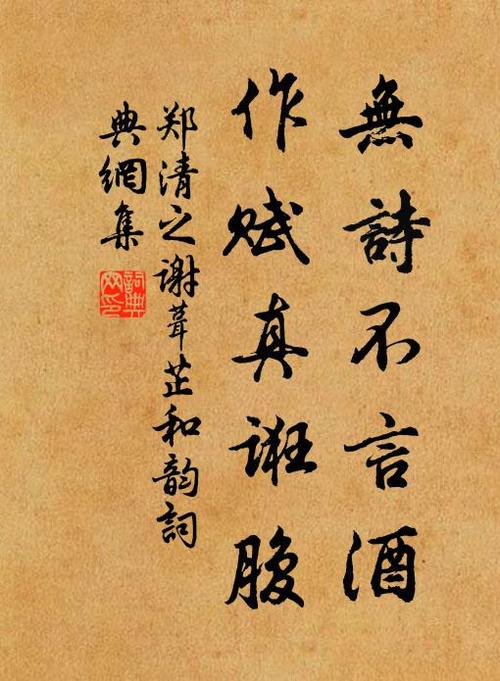 無詩不言酒
作赋真诳腹
郑清之谢葺芷和韵词
典網集
詞典网印